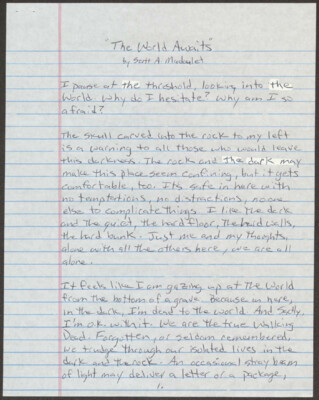 "The World Awaits"
by Scott A.
I pause at the threshold, looking into the
World. Why do I hesitate? Why am I so
afraid?
The small carved into the rock to my left
is a warning to all those who would leave
this darkness. The rock and the dark may
make this place seem confining, but it gets
comfortable, too. Its safe in here with
no temptations, no distractions, no one
else to complicate things. I like the dark
and the quiet, the hard floor, the hard walls,
the hard bunk. Just me and my thoughts,
alone with all the others here, we are all
alone.
It feels like I am gazing up at The World
from the bottom of a grave. Because in here,
in the dark, I'm dead to the world. And sadly,
I'm ok with it. We are the true Walking
Dead. Forgotten, or seldom remembered,
we trudge through our isolated lives in the
dark and the rock. An occasional stray beam
of light may deliver a letter or a package,
1.